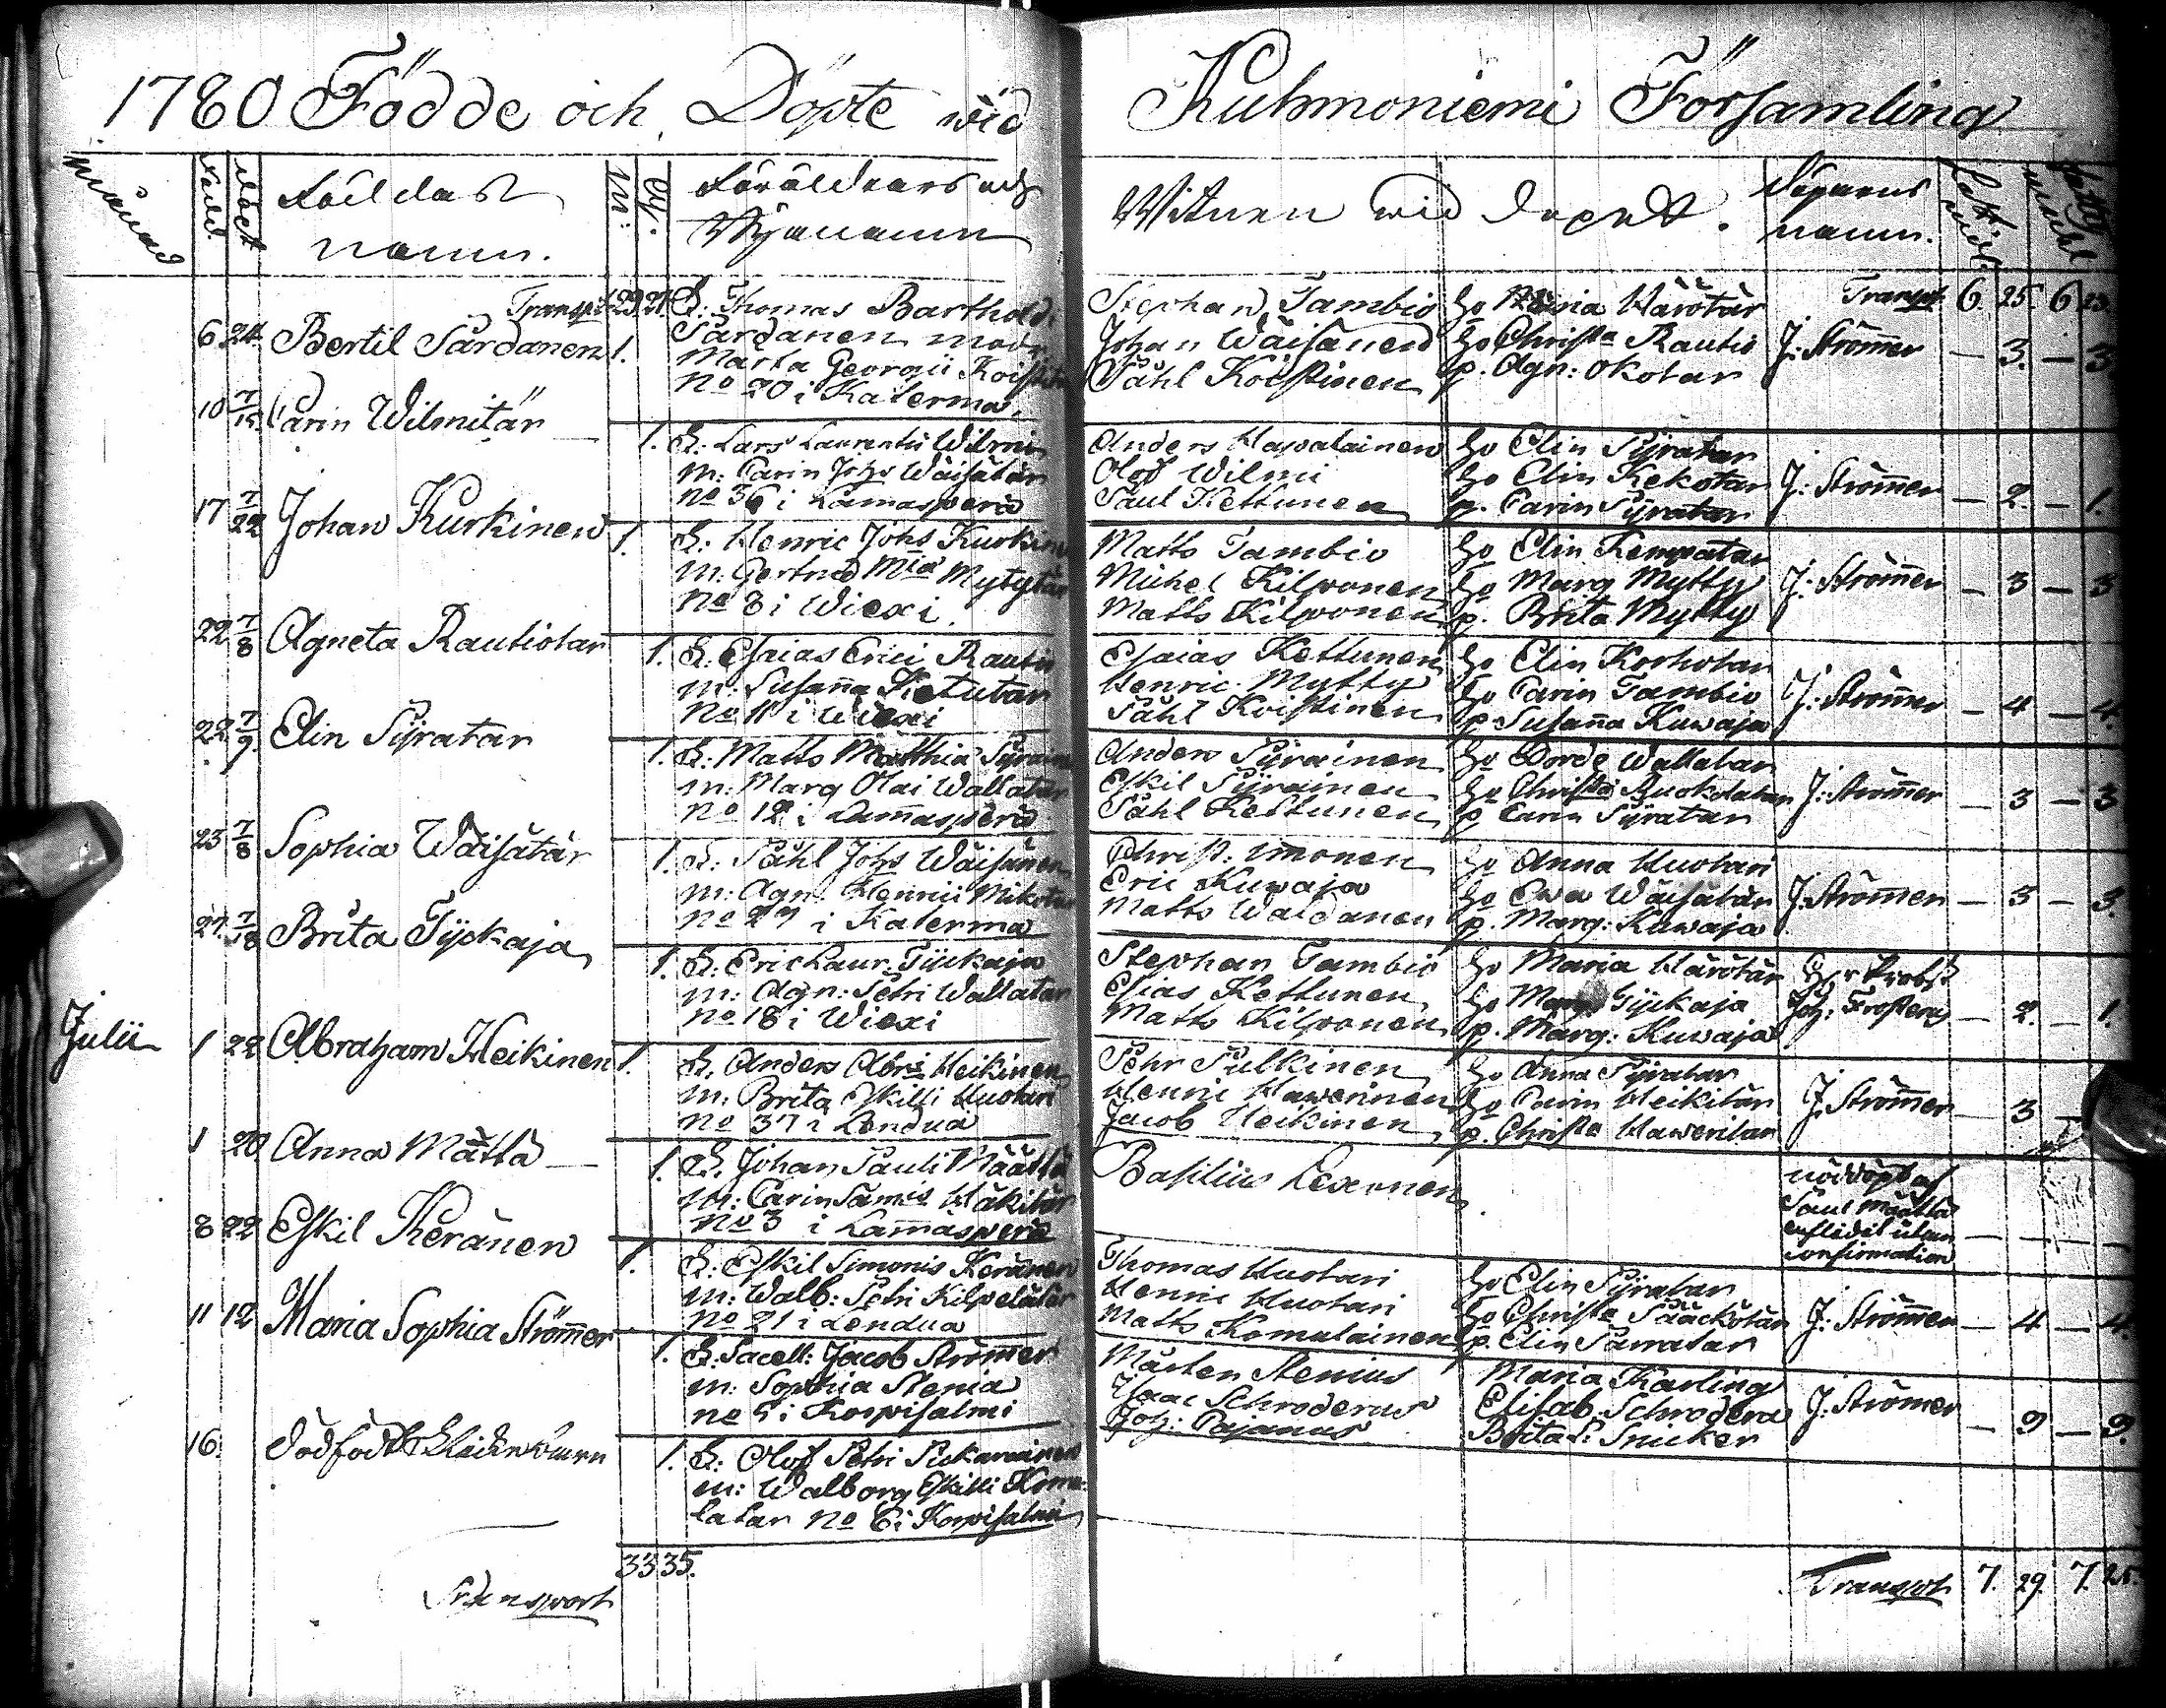 1780 Födde och Döpte wid Kuhmoniemi Församling
Månad Född. Döpt Föddas namn. M: Q. Föräldrars och Bynamn
Witnen wid dopet. Döparens namn.
Transpt 29. 21. Transpt 6. 25. 6 23.
6 24. Bertil Pärdänen 1.
F: Thomas Barthold: Pärdänen modr Marta Georgii Koistin No 20 i Katerma.
Stephan Tambio
Johan Wäisänen
Påhl Koistinen
Ho Maria Härötär
Ho Christa Rautio
p. Agn: Okotar
J: Strömer — 3. — 3
10 7/12 Carin Wilmitär 1.
F: Lars Laurentii Wilmi
m: Carin Johs Wäisätär
No 36 i Lamasperä
Anders Hapalainen
Olof Wilmi
Paul Kettunen
Ho Elin Pijratar
Ho Elin Kekotar
p. Carin Pijratar
J: Strömer — 2. — 1.
17 7/22 Johan Kurkinen 1.
F: Henric Johs Kurkinen
m: Gertrud Mia Mytytär
No 8 i Wiexi.
Matts Tambio
Michel Kilponen
Matts Kilponen
Ho Elin Kempatar
Ho Marg Mytty
p. Brita Mytty
J: Strömer — 3 — 3
22 7/8 Agneta Rautiotar 1.
F: Esaias Erici Rautio
m: Susana Ketutar
No 11 i Wiexi
Esaias Kettunen
Henric Mytty
Påhl Koistinen
Ho Elin Korhotar
Ho Carin Tambio
p Susana Kuwaja
J: Strömer — 4 — 4.
22 7/9. Elin Pijratar 1.
F: Matts Matthiæ Pijrainen
m: Marg Olai Wallatar
No 12 i Lamasperä
Anders Pijrainen
Eskil Pijrainen
Påhl Kettunen
Ho Dorde Wallatar
Ho Christa Ruokolatar
p Carin Pijratar
J: Strömer — 3 — 3
23 7/8 Sophia Wäisätär 1.
F: Påhl Johs Wäisänen
m: Agn: Henrici Mikotar
No 27 i Katerma
Christ: Imonen
Eric Kuwaja
Matts Waldanen
Ho Anna Huotari
Ho Ewa Wäisätär
p. Marg: Kuwaja
J: Strömer — 3 — 3.
27. 7/8 Brita Tijckaja 1.
F: Eric Laur. Tijckaja
m: Agn: Petri Wallatar
No 18 i Wiexi
Stephan Tambio
Esias Kettunen
Matts Kilponen
Ho Maria Härötär
Ho Marg Tijckaja
p. Marg: Kuwaja
Hr Probst Joh: Frosterus — 2. — 1.
Julii 1 22 Abraham Heikinen 1.
F. Anders Abrs Heikinen
m: Brita Eskilli Huotari
No 37 i Lendua
Pehr Pulkinen
Henric Hawerinen
Jacob Heikinen
Ho Anna Pijratar
Ho Carin Heikitär
p. Christa Haweritar
J. Strömer — 3 —
1 20. Anna Mättä — 1.
F. Johan Pauli Määttä
m: Carin Samis Häkitär
No 3 i Lamäsperä
Basilius Lexonen
nöddöpt af Paul Määttä aflidit utan confirmation
8 22 Eskil Keränen 1.
F: Eskil Simonis Keränen
m: Walb: Petri Kilpelätär
No 21 i Lendua
Thomas Huotari
Henric Huotari
Matts Komulainen
Ho Elin Pijratar
Ho Christa Pääckötär
p. Elin Parratar
J: Strömer — 4 — 4.
11 12 Maria Sophia Strömer 1.
F: Sacell: Jacob Strömer
m: Sophia Stenia
no 5 i Korpisalmi
Mårten Stenius
Isaac Schroderus
Joh: Cajanus
Maria Karling
Elisab. Schrodera
Brita P: Snicker
J: Strömer — 9 — 9.
16. dödfödt flickebarn 1.
F: Olof Petri Pickarainen
m: Walborg Eskilli Komulatar No 6 i Korpisalmi
Transport 33 35. Transpt 7. 29. 7. 25.